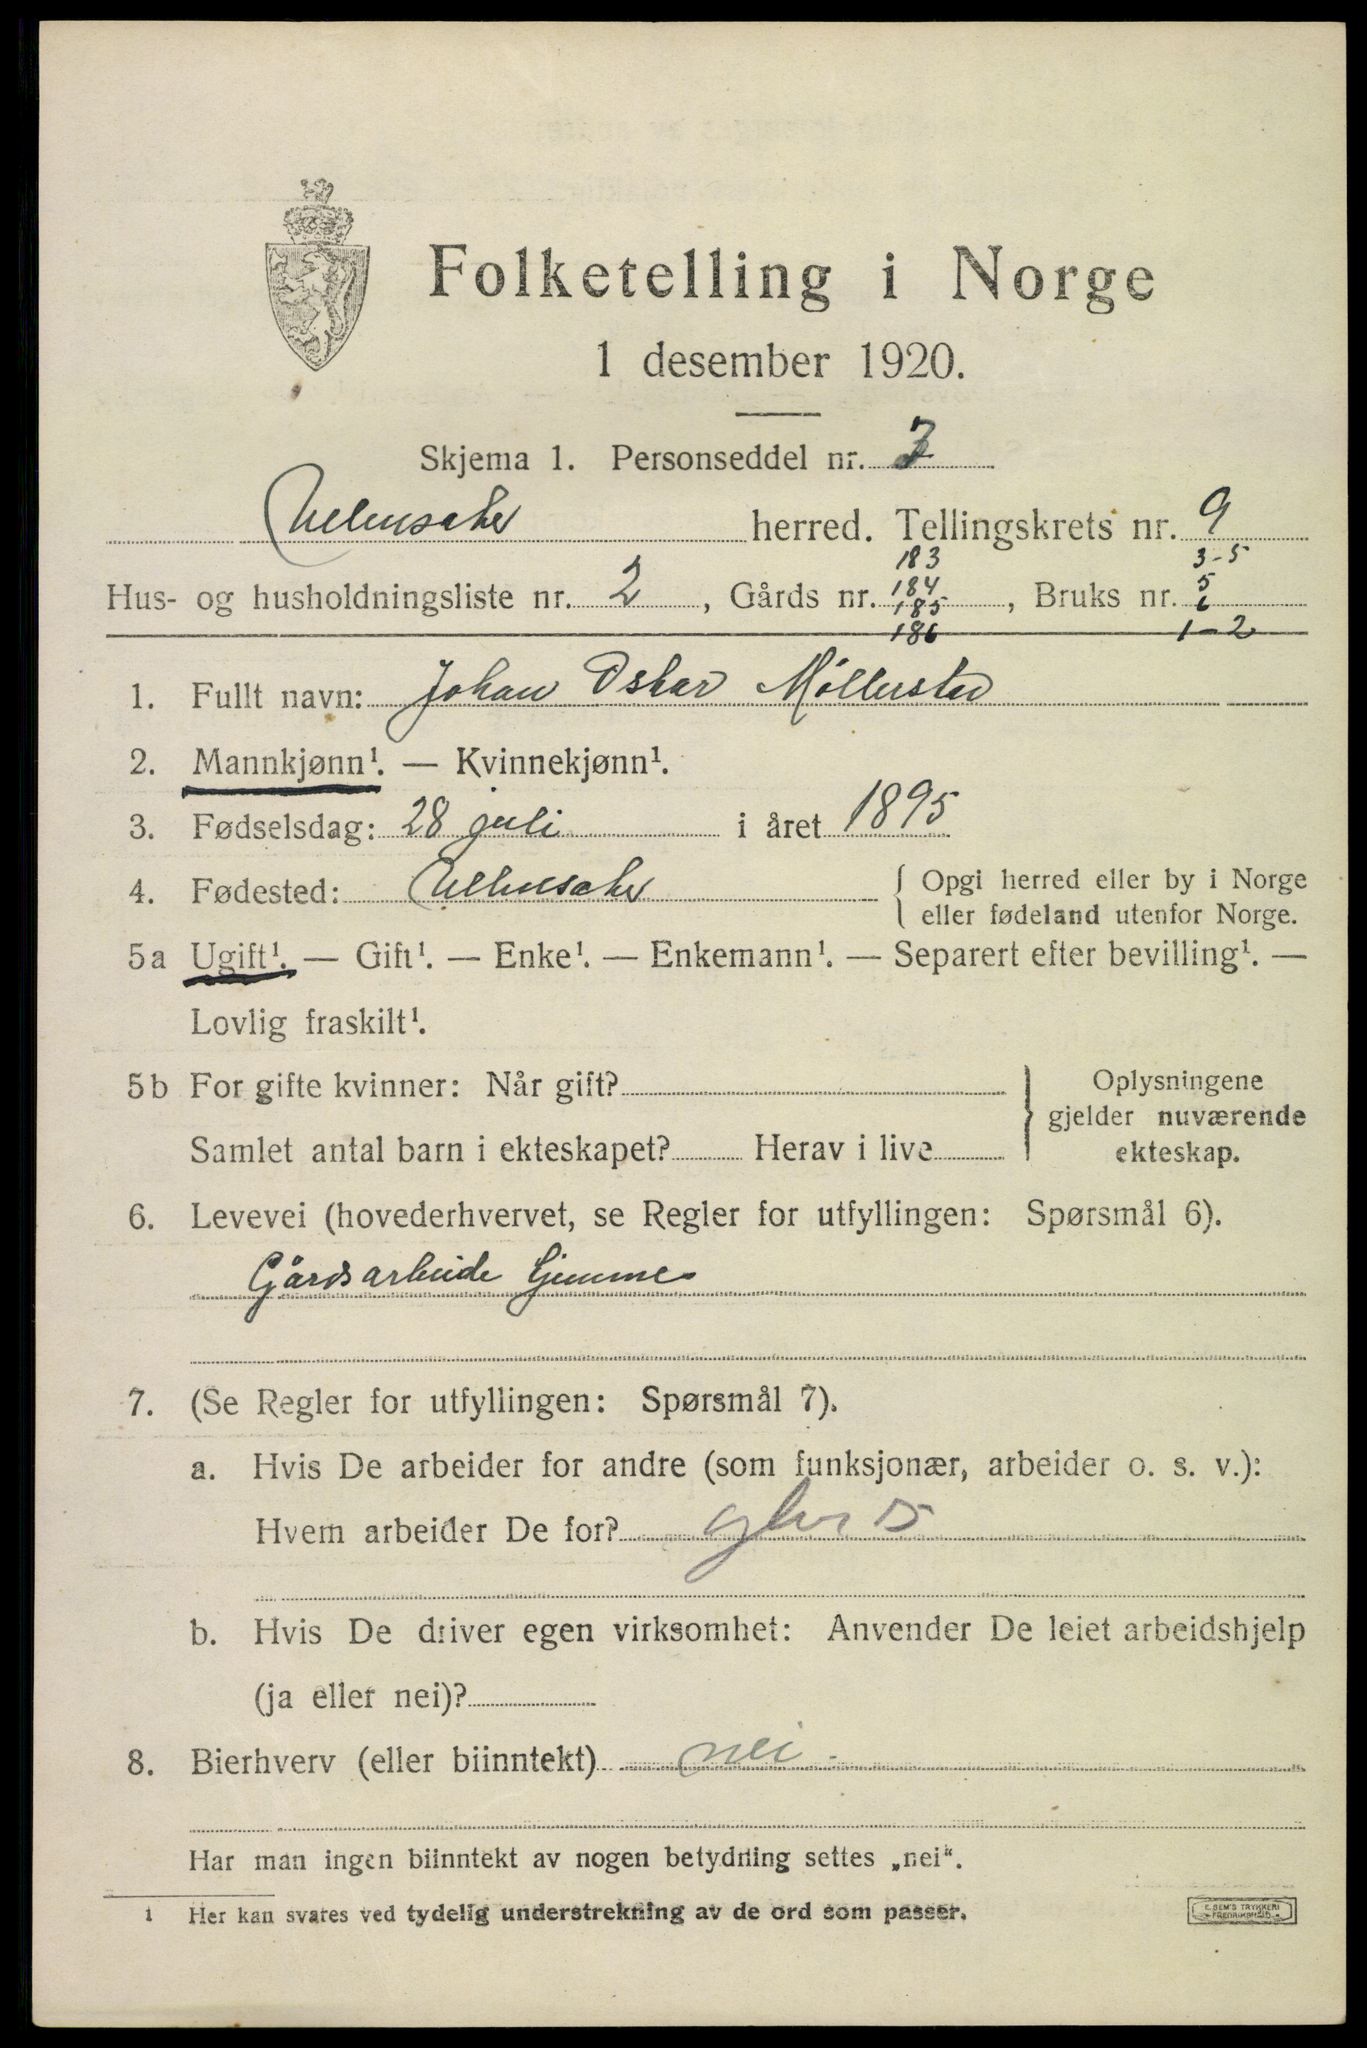 Folketelling i Norge
1 desember 1920.
Skjema 1. Personseddel nr. 3
Ullensaker herred. Tellingskrets nr. 9
183 3-5
Hus- og husholdningsliste nr. 2, Gårds nr. 184, Bruks nr. 5
185 6
186 1-2
1. Fullt navn: Johan Oskar Møllerstad
2. Mannkjønn¹. — Kvinnekjønn¹.
3. Fødselsdag: 28 juli i året 1895
4. Fødested: Ullensaker { Opgi herred eller by i Norge
eller fødeland utenfor Norge.
5a Ugift¹. — Gift¹. — Enke¹. — Enkemann¹. — Separert efter bevilling¹. —
Lovlig fraskilt¹.
5b For gifte kvinner: Når gift?
Samlet antal barn i ekteskapet? Herav i live
} Oplysningene
gjelder nuværende
ekteskap.
6. Levevei (hovederhvervet, se Regler for utfyllingen: Spørsmål 6).
Gårdsarbeide hjemme
7. (Se Regler for utfyllingen: Spørsmål 7).
a. Hvis De arbeider for andre (som funksjonær, arbeider o. s. v.):
Hvem arbeider De for?
b. Hvis De driver egen virksomhet: Anvender De leiet arbeidshjelp
(ja eller nei)?
8. Bierhverv (eller biinntekt) nei.
Har man ingen biinntekt av nogen betydning settes „nei".
1 Her kan svares ved tydelig understrekning av de ord som passer.
E. SEM'S TRYKKERI
FREDRIKSHALD